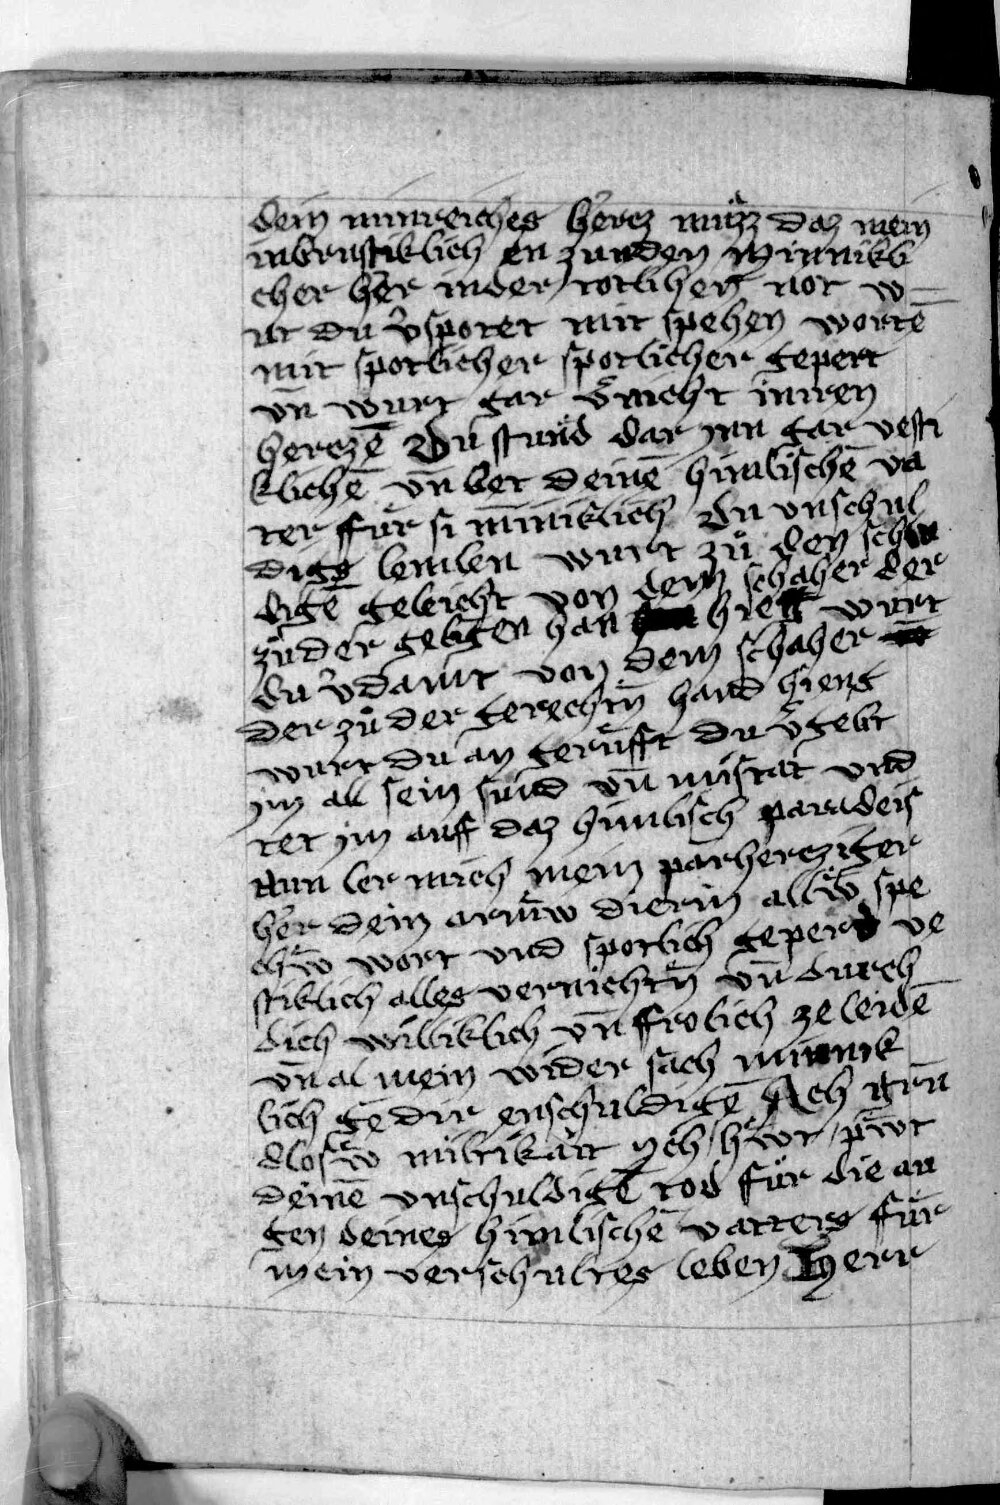 dein minreiches hercz müzz daz mein
inbrustiklich en zunden Minnikli
cher her in der totlihen not w
rt du v̄spotet mit spehen wortē
mit spotlicher spotlicher gepert
vn̄ wurt gar v̄nicht in iren
herczē Du stund dar inn gar vesti
klichē vn̄ bet deinē himlischē va
ter für si miniklich Du vnschul
digs lemlen wurt zů den schul
digē geleicht von dem schaher der
zů der gelingen han hieng wurt
du v̄damt von dem schaher
der zů der gerechtn̄ hand hieng
wurt du an gerüfft du v̄gebt
im all sein sünd vn̄ mistat vnd
tet im auff daz himlisch paradeis
Nun ler mich mein parhercziger
her dein armw dierin allw̄ spe
chw̄ wort vnd spotlich geperd ve
stiklich alles vernichtn̄ vn̄ durch
dich williklich vn̄ frolich ze leidē
vn̄ al mein wider sach minnik
lich gē dir enschuldigē Ach grū
dlosw̄ miltikait ich hewt pewt
deinē vnschuldigē tod für die au
gen deines himlischē vatters für
mein verschultes leben Herr